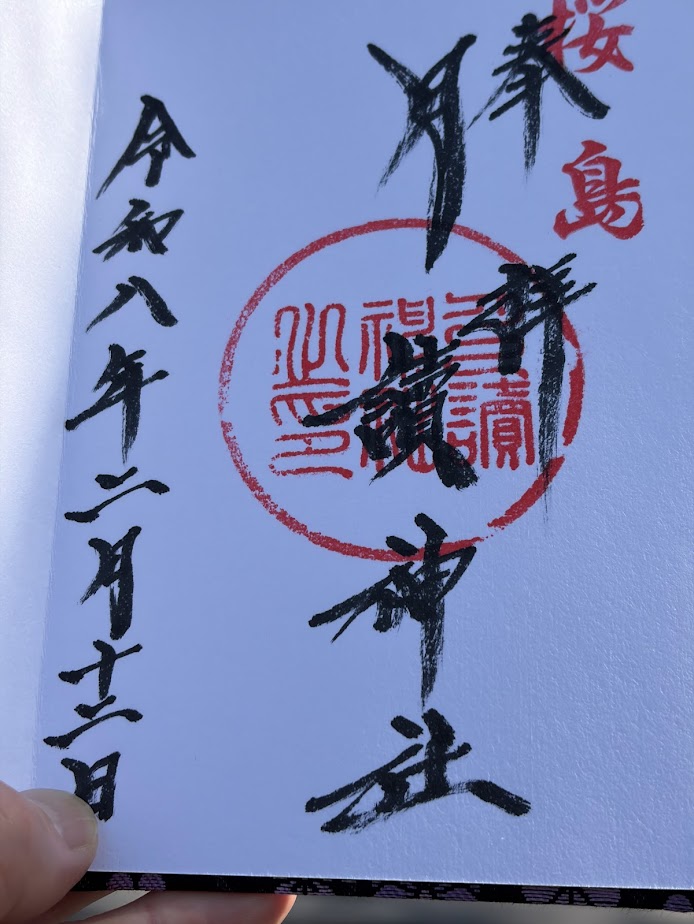 桜島
奉拝
月讀神社
月讀
神社
之印
令和八年二月十二日